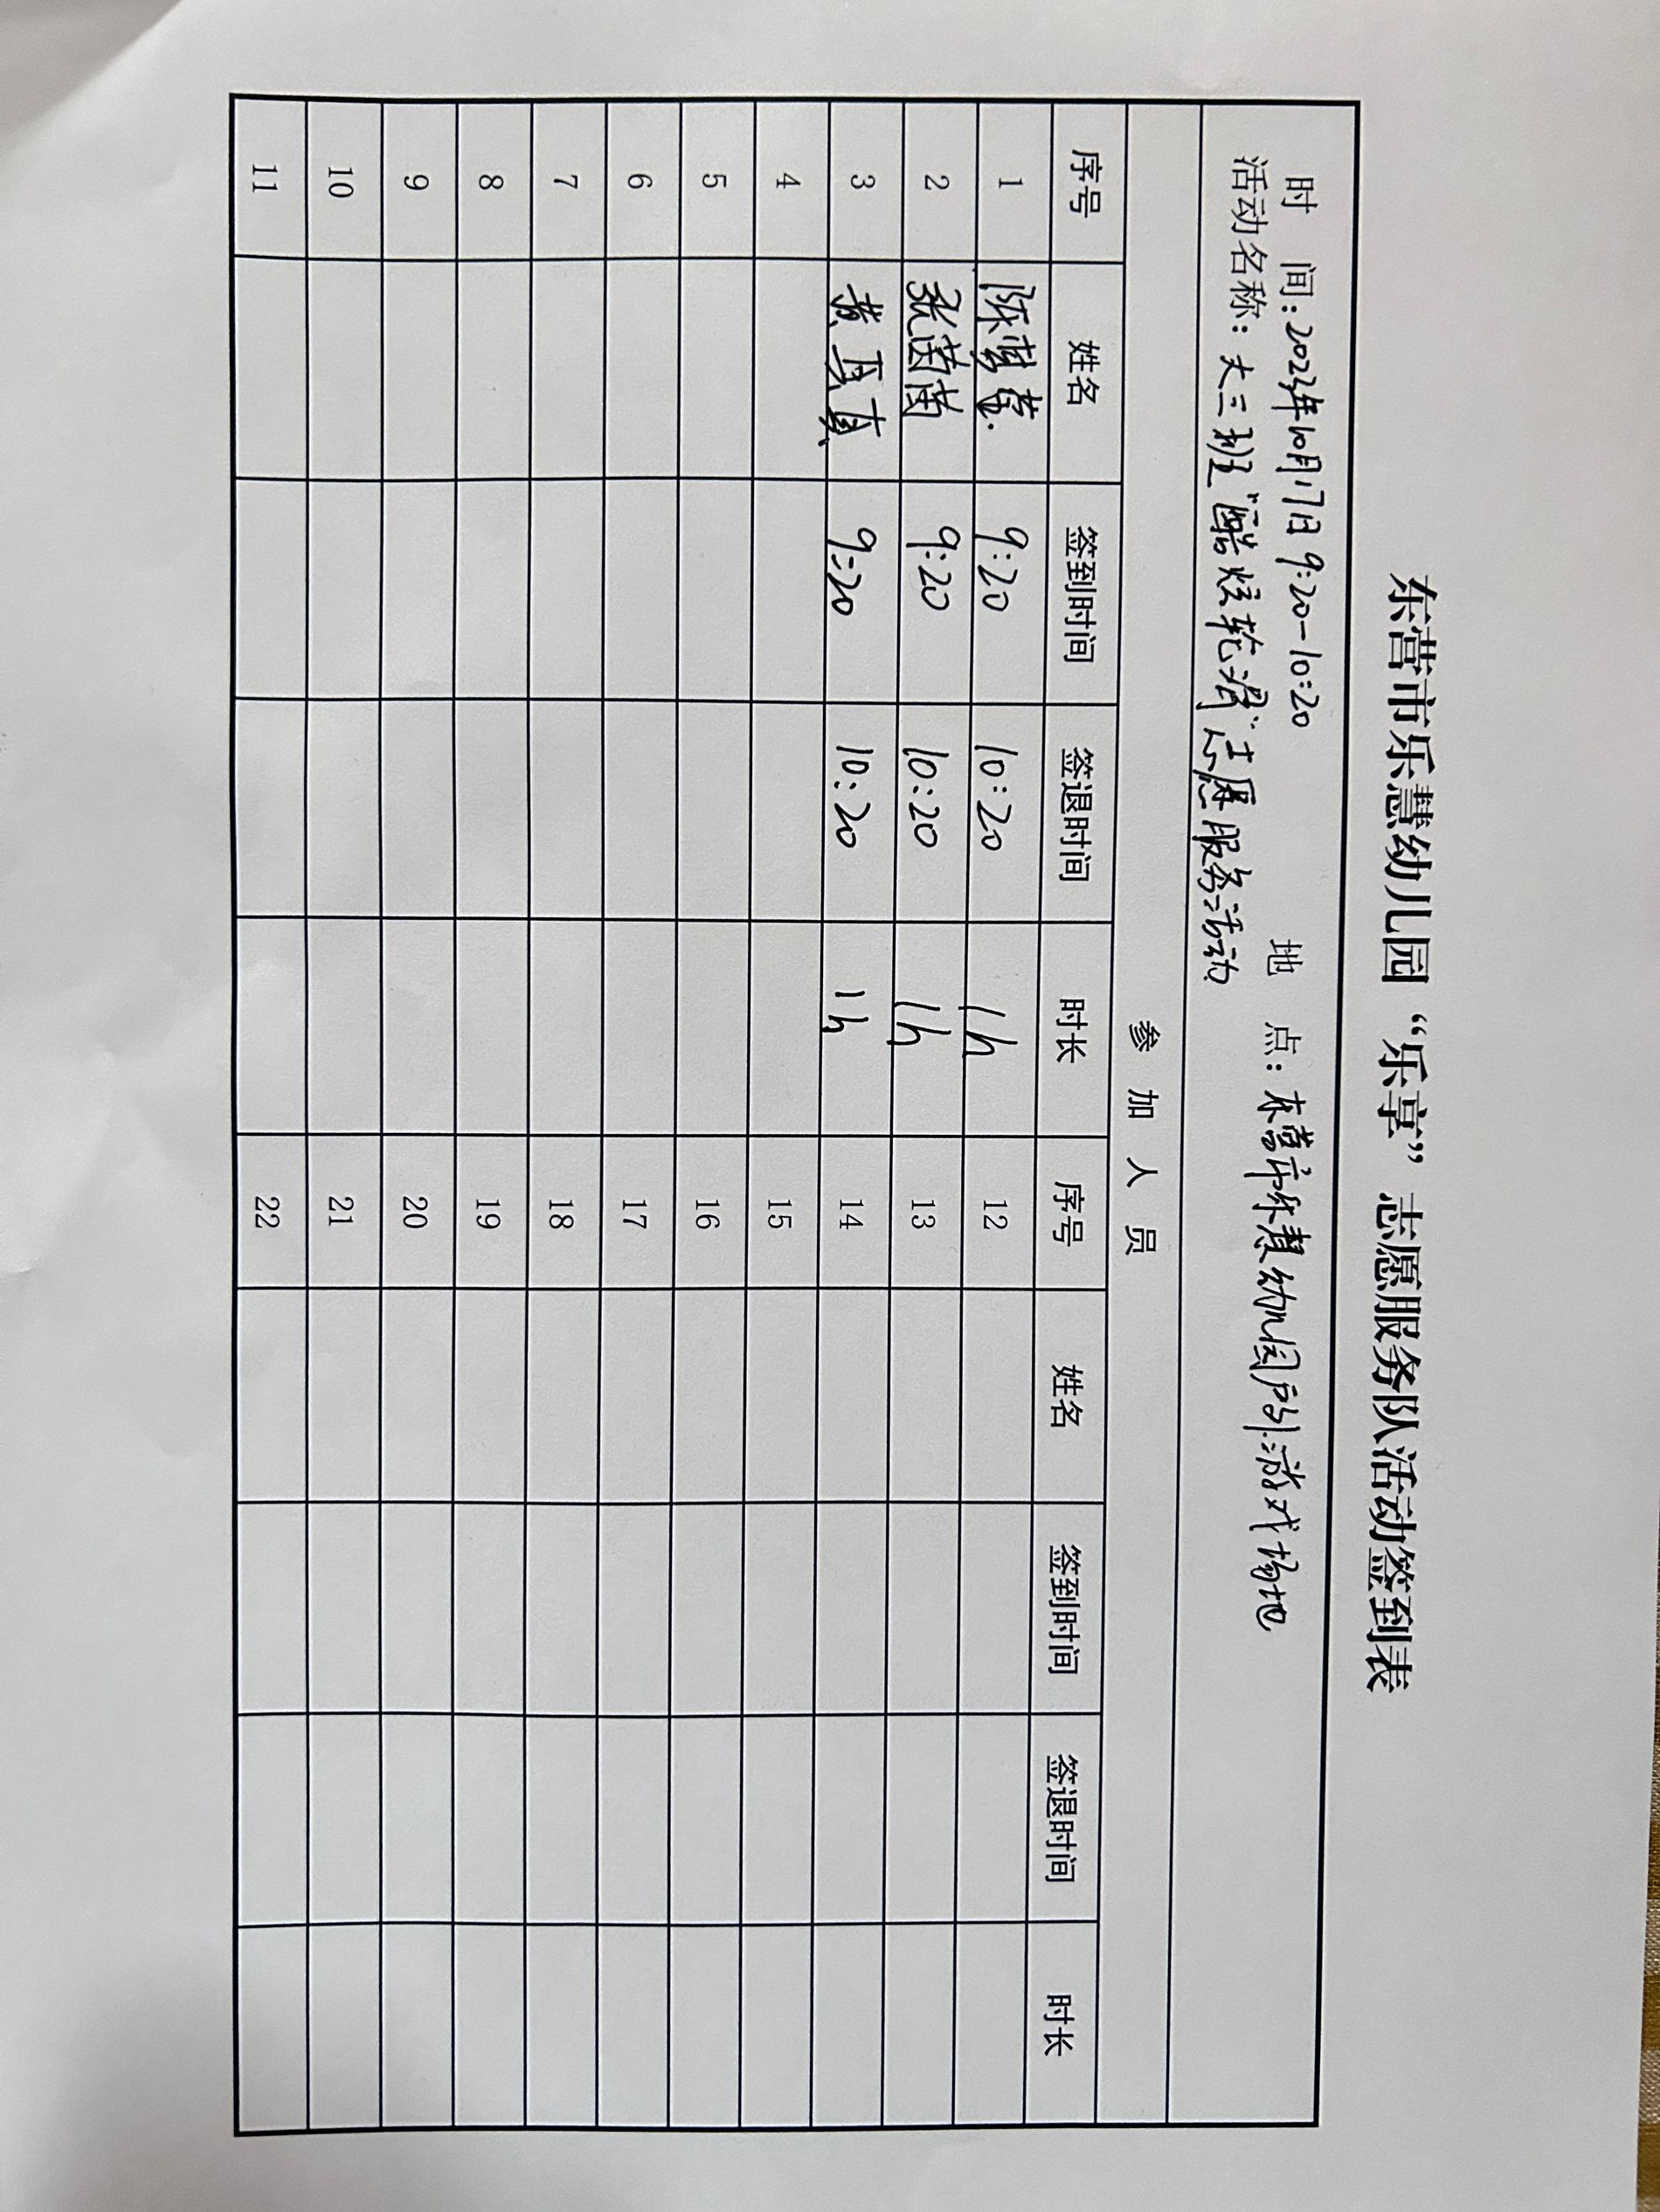 东营市乐慧幼儿园“乐享”志愿服务队活动签到表
时 间：2023年10月17日 9:20-10:20 地 点：东营市乐慧幼儿园户外游戏场地
活动名称：大三班“酷炫轮滑”志愿服务活动
参 加 人 员
序号 姓名 签到时间 签退时间 时长 序号 姓名 签到时间 签退时间 时长
1 9:20 10:20 1h 12
2 张茵茵 9:20 10:20 1h 13
3 黄真真 9:20 10:20 1h 14
4 15
5 16
6 17
7 18
8 19
9 20
10 21
11 22